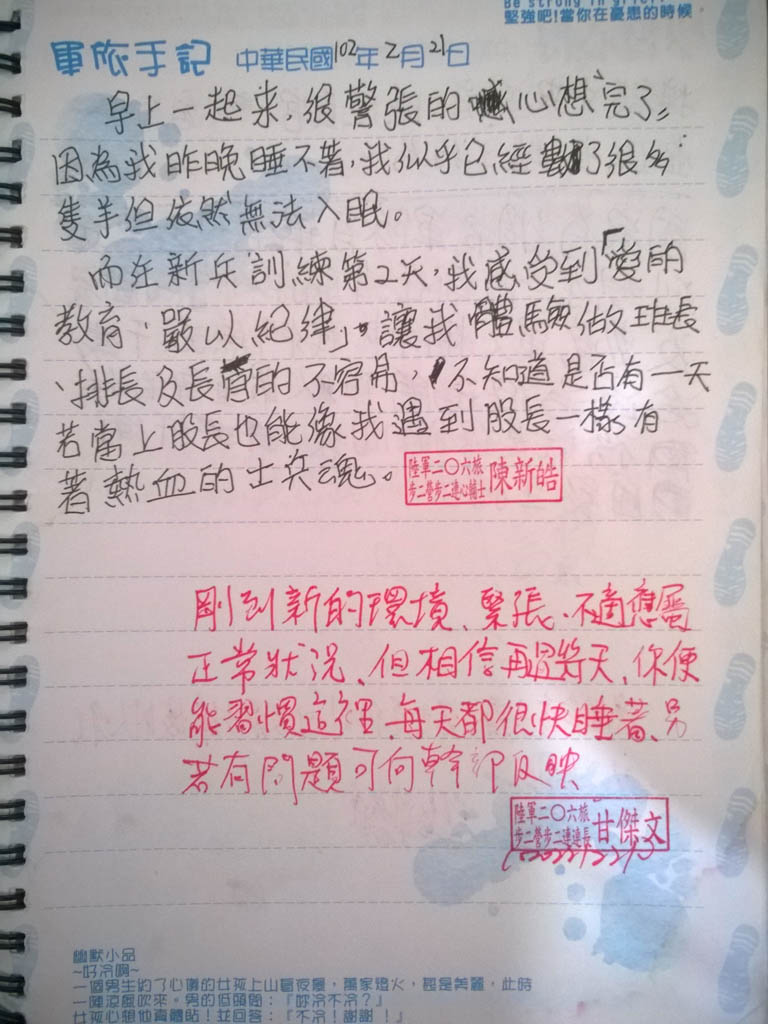 Be strong in grief.
堅強吧！當你在憂患的時候。
軍旅手記 中華民國102年2月21日
早上一起來，很警張的心想"完了"
因為我昨晚睡不著，我似乎已經數了很多
隻羊但依然無法入眠。
而在新兵訓練第2天，我感受到「愛的
教育，嚴以紀律」。讓我體驗做班長
、排長及長官的不容易，不知道是否有一天
若當上股長也能像我遇到股長一樣，有
著熱血的士兵魂。
陸軍二〇六旅
步二營步二連心輔士 陳新皓
剛到新的環境、緊張、不適應屬
正常狀況、但相信再過幾天、你便
能習慣這裡、每天都很快睡著、另
若有問題可向幹部反映
陸軍二〇六旅
步二營步二連連長 甘傑文
幽默小品
~好冷啊~
一個男生約了心儀的女孩上山看夜景，萬家燈火，甚是美麗，此時
一陣涼風吹來。男的低頭問：『妳冷不冷？』
女孩心想他真體貼！並回答：『不冷！謝謝！』